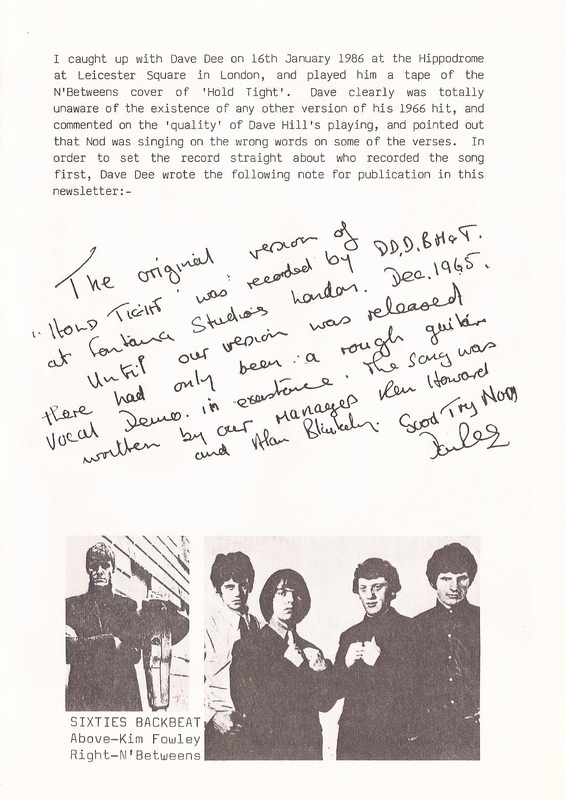 I caught up with Dave Dee on 16th January 1986 at the Hippodrome
at Leicester Square in London, and played him a tape of the
N'Betweens cover of 'Hold Tight'.  Dave clearly was totally
unaware of the existence of any other version of his 1966 hit, and
commented on the 'quality' of Dave Hill's playing, and pointed out
that Nod was singing on the wrong words on some of the verses.  In
order to set the record straight about who recorded the song
first, Dave Dee wrote the following note for publication in this
newsletter:-
The original version of
"HOLD TIGHT' was recorded by DD,D.B M&T.
at Fontana Studios London. Dec. 1965.
Until our version was released
there had only been a rough guitar
Vocal Demo. in existence. The Song was
written by our managers Ken Howard
and Alan Blaikely. Good Try Nod
SIXTIES BACKBEAT
Above-Kim Fowley
Right-N'Betweens